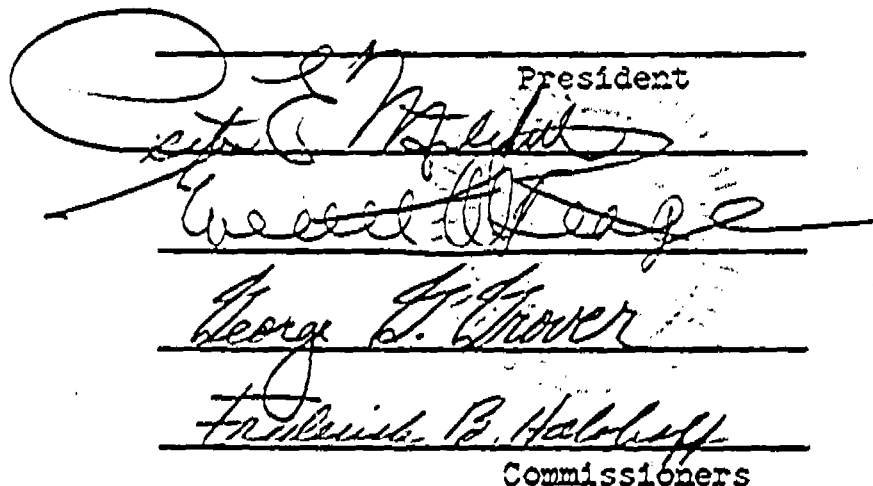 President
Peter E. Mitchell
George G. Grover
Frederick B. Holoboff
Commissioners